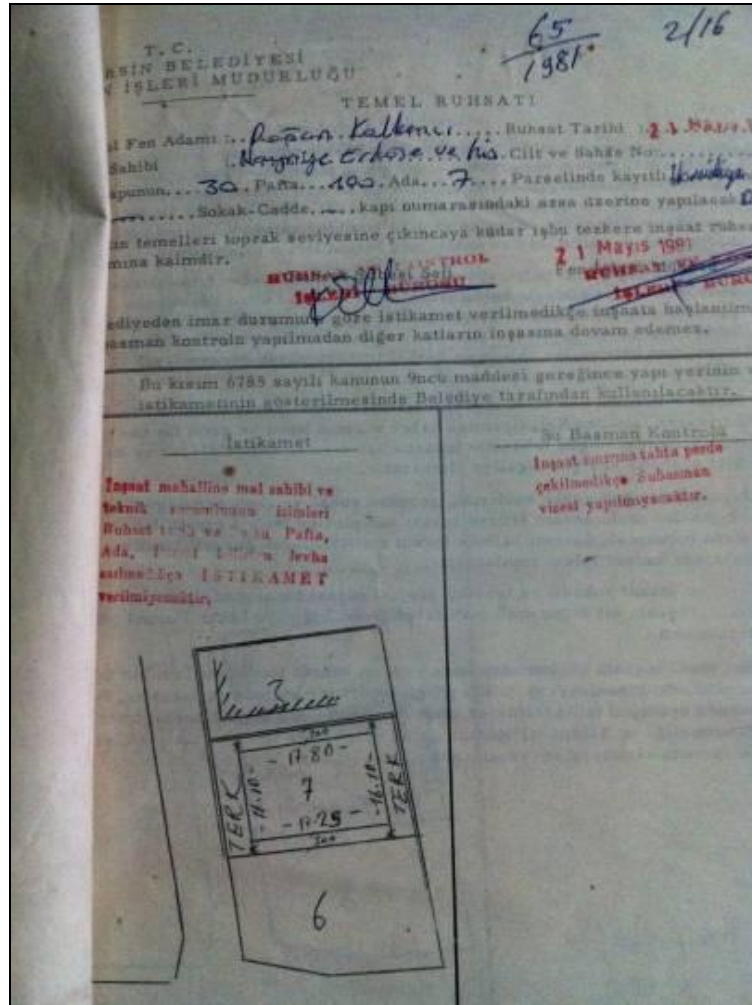 65
1981
2/16
T. C.
RSİN BELEDİYESİ
N İŞLERİ MÜDÜRLÜĞÜ
TEMEL RUHSATI
l Fen Adamı : Ruhsat Tarihi : 21 Mayıs
Sahibi : ve his. Cilt ve Sahife No:
apunun 30 Pafta 190 Ada 7 Parselinde kayıtlı
Sokak-Cadde kapı numarasındaki arsa üzerine yapılacak
n temelleri toprak seviyesine çıkıncaya kadar işbu tezkere inşaat ruhsa
mına kaimdir.
21 Mayıs 1981
RUHSAT KONTROL
İŞLERİ BÜROSU
RUHSAT VE
İŞLERİ BÜRO
ediyeden imar durumuna göre istikamet verilmedikçe inşaata başlanılma
basman kontrolu yapılmadan diğer katların inşasına devam edemez.
Bu kısım 6785 sayılı kanunun 9ncu maddesi gereğince yapı yerinin v
istikametinin gösterilmesinde Belediye tarafından kullanılacaktır.
İstikamet
Su Basman Kontrolu
İnşaat mahalline mal sahibi ve
teknik isimleri
Ruhsat ve Pafta,
Ada, levha
İSTİKAMET
verilmiyecektir.
İnşaat tahta perde
çekilmedikçe Subasman
vizesi yapılmıyacaktır.
3
300
- 17.80 -
TERK
- 16.10 -
7
- 16.10 -
TERK
- 17.25 -
300
6